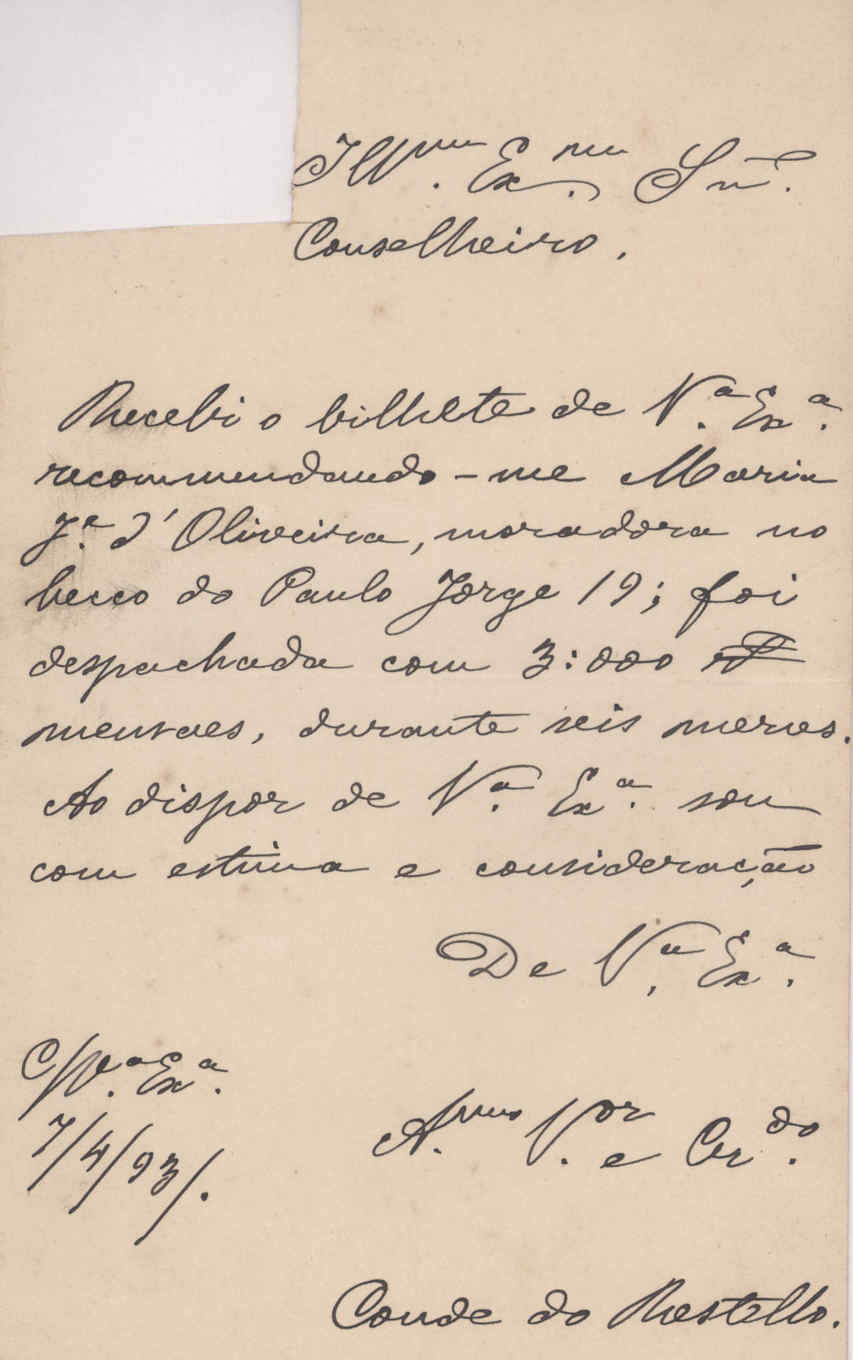 Illmo. Exmo. Snr.
Conselheiro.
Recebi o bilhete de Va. Exa.
recommendando-me Maria
Ja. d'Oliveira, moradora no
becco do Paulo Jorge 19; foi
despachada com 3:000 rs
mensaes, durante seis meses.
Ao dispor de Va. Exa. sou
com estima e consideração
De Va. Exa.
C/Va. Exa.
7/4/93/.
Amo. Vor. e Crdo.
Conde do Restello.